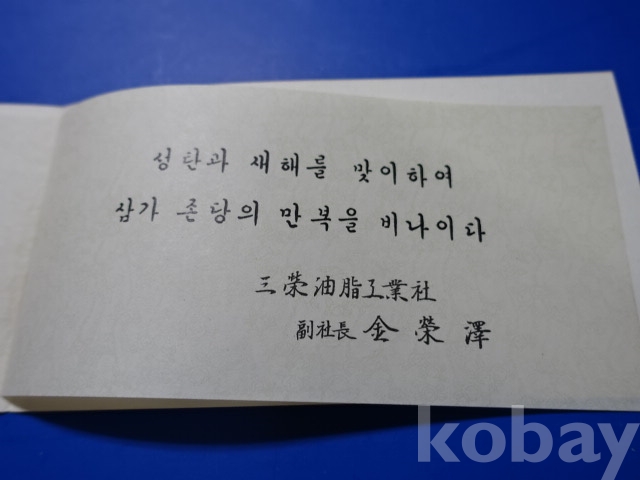 성탄과 새해를 맞이하여
삼가 존당의 만복을 비나이다
三榮油脂工業社
副社長 金榮澤
kobay